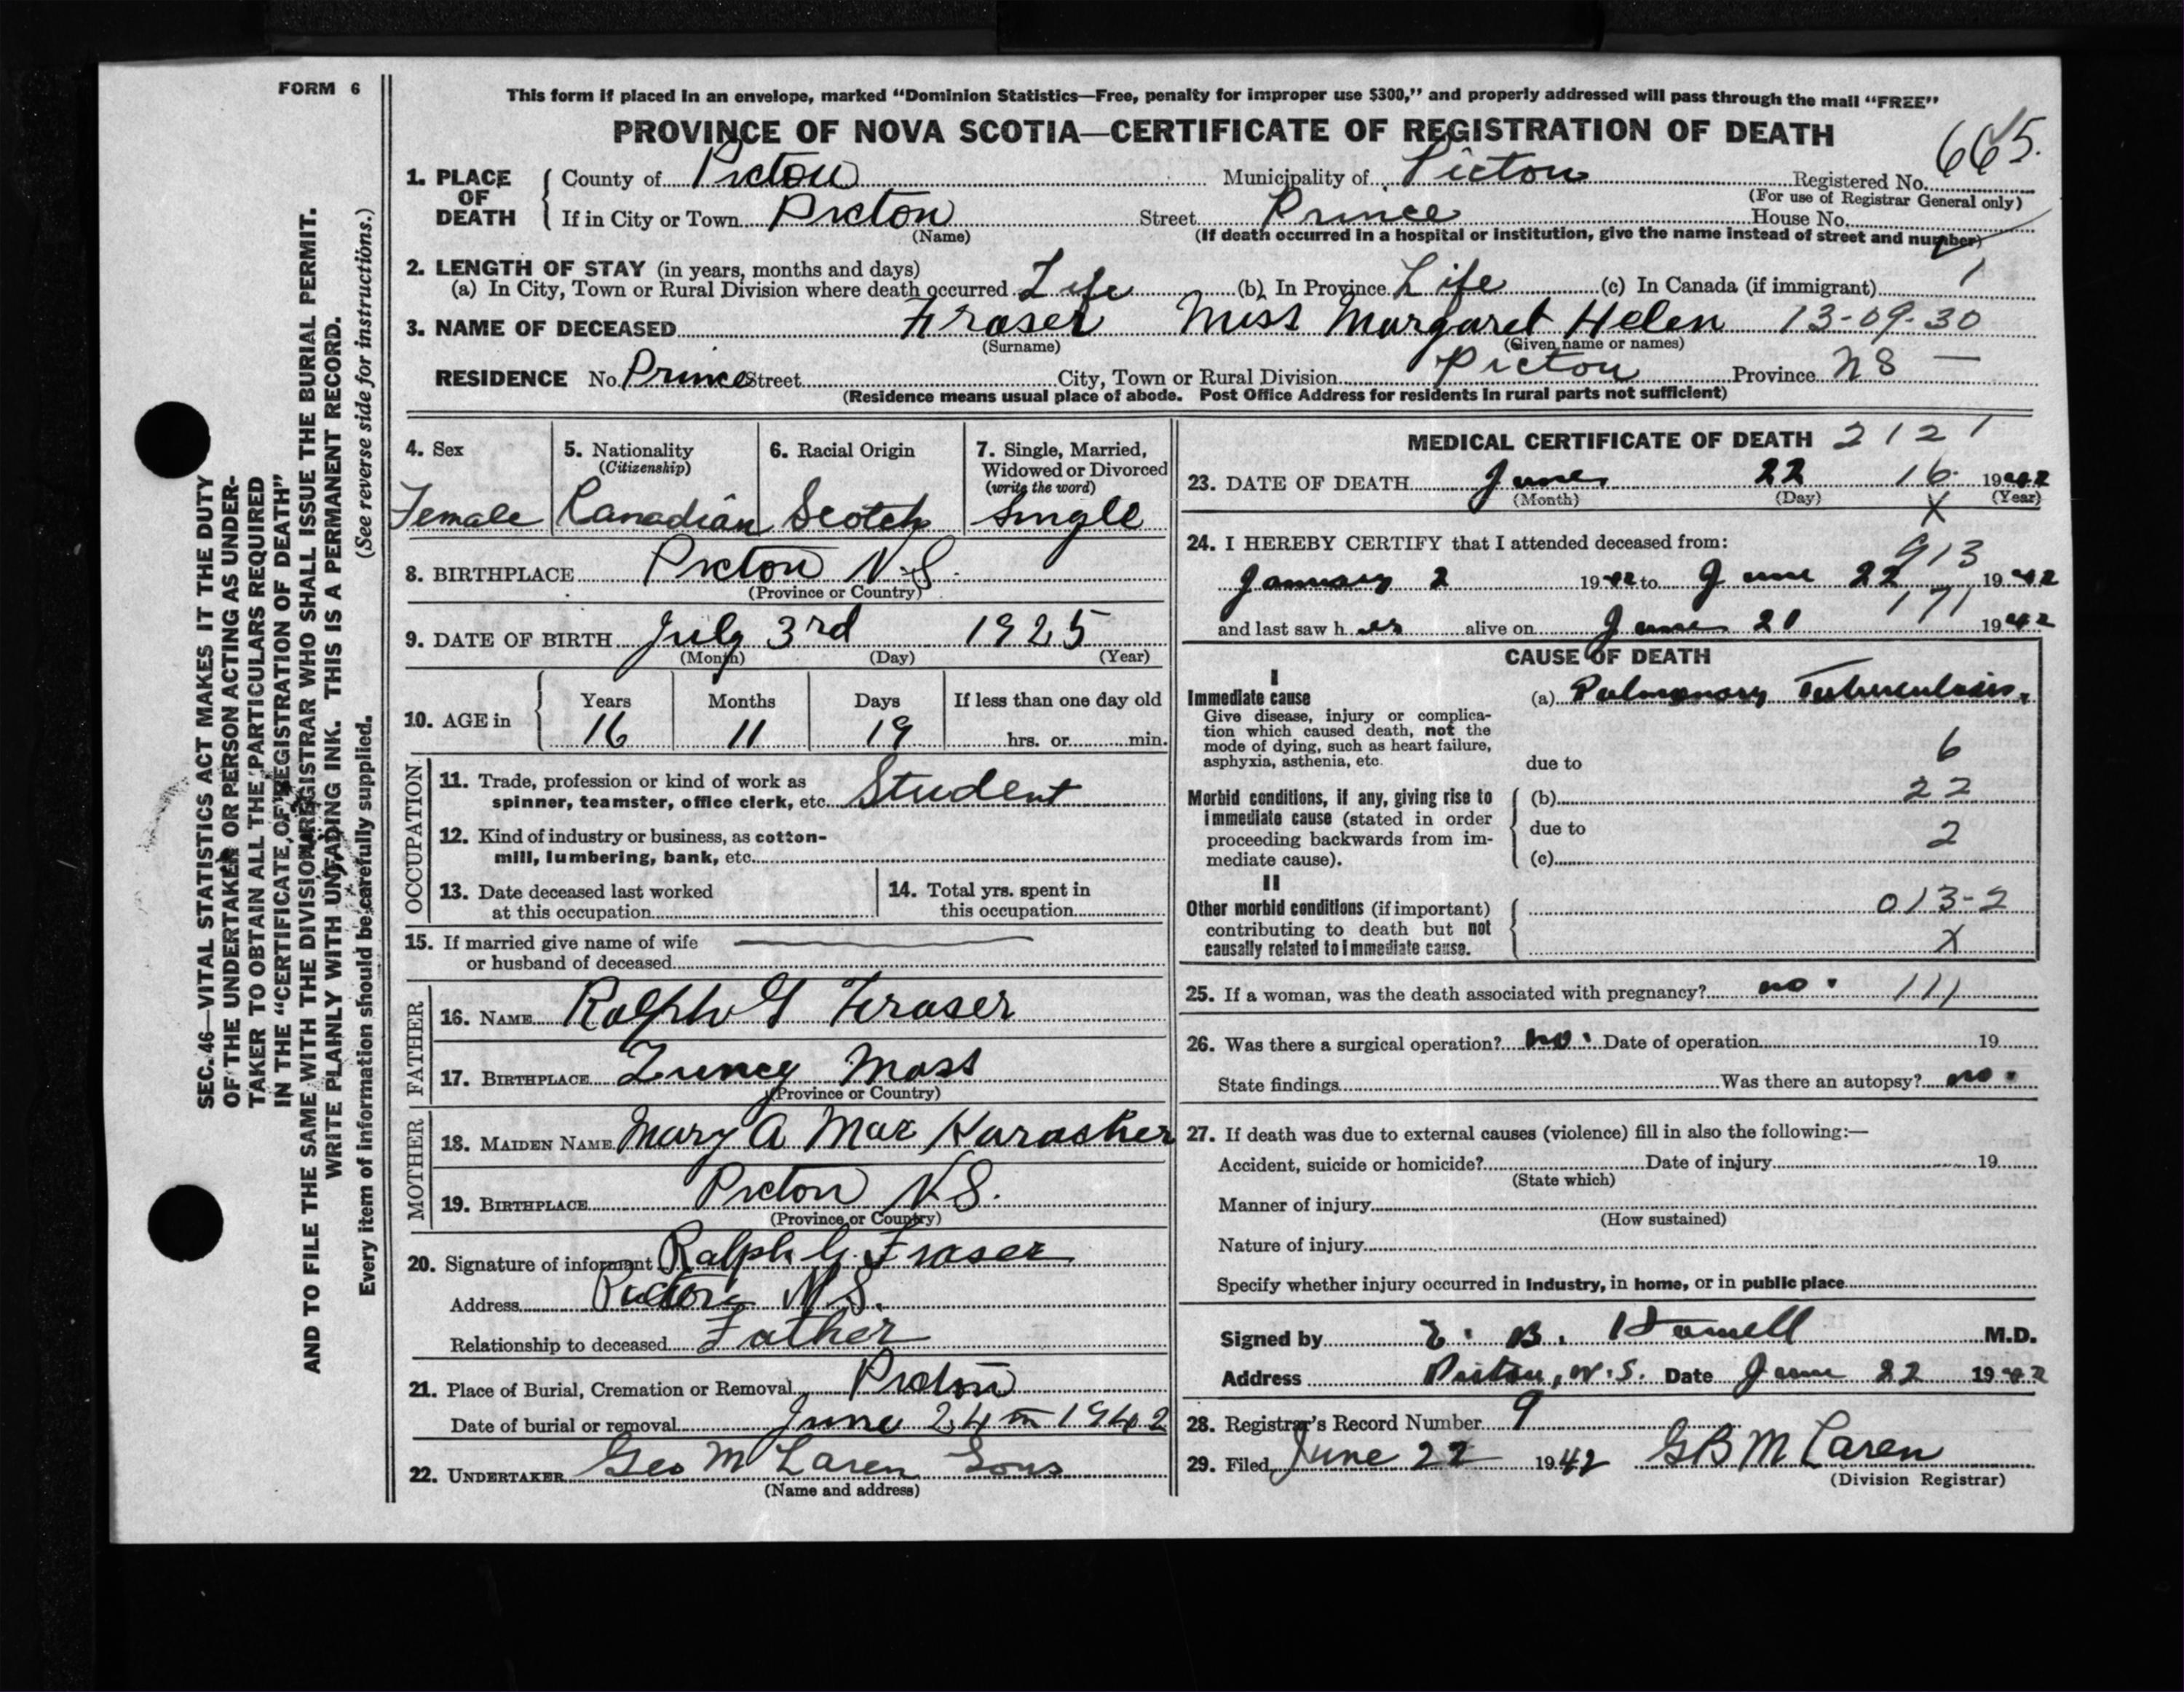 FORM 6
This form if placed in an envelope, marked "Dominion Statistics—Free, penalty for improper use $300," and properly addressed will pass through the mail "FREE"
PROVINCE OF NOVA SCOTIA—CERTIFICATE OF REGISTRATION OF DEATH
665.
1. PLACE OF DEATH County of Pictou Municipality of Pictou Registered No.
(For use of Registrar General only)
If in City or Town Pictou Street Prince House No.
(Name) (If death occurred in a hospital or institution, give the name instead of street and number)
2. LENGTH OF STAY (in years, months and days)
(a) In City, Town or Rural Division where death occurred Life (b) In Province Life (c) In Canada (if immigrant) 1
3. NAME OF DECEASED Fraser Miss Margaret Helen 13-09-30
(Surname) (Given name or names)
RESIDENCE No. Prince Street City, Town or Rural Division Pictou Province NS —
(Residence means usual place of abode. Post Office Address for residents in rural parts not sufficient)
4. Sex 5. Nationality 6. Racial Origin 7. Single, Married,
(Citizenship) Widowed or Divorced
(write the word)
Female Canadian Scotch Single
8. BIRTHPLACE Pictou N.S.
(Province or Country)
9. DATE OF BIRTH July 3rd 1925
(Month) (Day) (Year)
10. AGE in Years Months Days If less than one day old
16 11 19 hrs. or min.
OCCUPATION
11. Trade, profession or kind of work as
spinner, teamster, office clerk, etc. Student
12. Kind of industry or business, as cotton-
mill, lumbering, bank, etc.
13. Date deceased last worked 14. Total yrs. spent in
at this occupation this occupation
15. If married give name of wife
or husband of deceased
FATHER
16. NAME Ralph G Fraser
17. BIRTHPLACE Mass
(Province or Country)
MOTHER
18. MAIDEN NAME Mary A Mac
19. BIRTHPLACE Pictou N.S.
(Province or Country)
20. Signature of informant Ralph G. Fraser
Address Pictou N.S.
Relationship to deceased Father
21. Place of Burial, Cremation or Removal Pictou
Date of burial or removal June 24th 1942
22. UNDERTAKER Geo McLaren Sons
(Name and address)
MEDICAL CERTIFICATE OF DEATH 2121
23. DATE OF DEATH June 22 16 1942
(Month) (Day) X (Year)
24. I HEREBY CERTIFY that I attended deceased from:
913
January 2 1942 to June 22 1942
171
and last saw her alive on June 21 1942
CAUSE OF DEATH
I
Immediate cause (a) Pulmonary Tuberculosis.
Give disease, injury or complica-
tion which caused death, not the
mode of dying, such as heart failure,
asphyxia, asthenia, etc. due to 6
Morbid conditions, if any, giving rise to (b) 22
immediate cause (stated in order
proceeding backwards from im- due to 2
mediate cause). (c)
II
Other morbid conditions (if important) 013-2
contributing to death but not
causally related to immediate cause. X
25. If a woman, was the death associated with pregnancy? no. 111
26. Was there a surgical operation? no. Date of operation 19
State findings Was there an autopsy? no.
27. If death was due to external causes (violence) fill in also the following:—
Accident, suicide or homicide? Date of injury 19
(State which)
Manner of injury
(How sustained)
Nature of injury
Specify whether injury occurred in industry, in home, or in public place
Signed by E. B. M.D.
Address Pictou, N.S. Date June 22 1942
28. Registrar's Record Number 9
29. Filed June 22 1942 GB McLaren
(Division Registrar)
SEC. 46—VITAL STATISTICS ACT MAKES IT THE DUTY
OF THE UNDERTAKER OR PERSON ACTING AS UNDER-
TAKER TO OBTAIN ALL THE PARTICULARS REQUIRED
IN THE "CERTIFICATE OF REGISTRATION OF DEATH"
AND TO FILE THE SAME WITH THE DIVISION REGISTRAR WHO SHALL ISSUE THE BURIAL PERMIT.
WRITE PLAINLY WITH UNFADING INK. THIS IS A PERMANENT RECORD.
Every item of information should be carefully supplied. (See reverse side for instructions.)